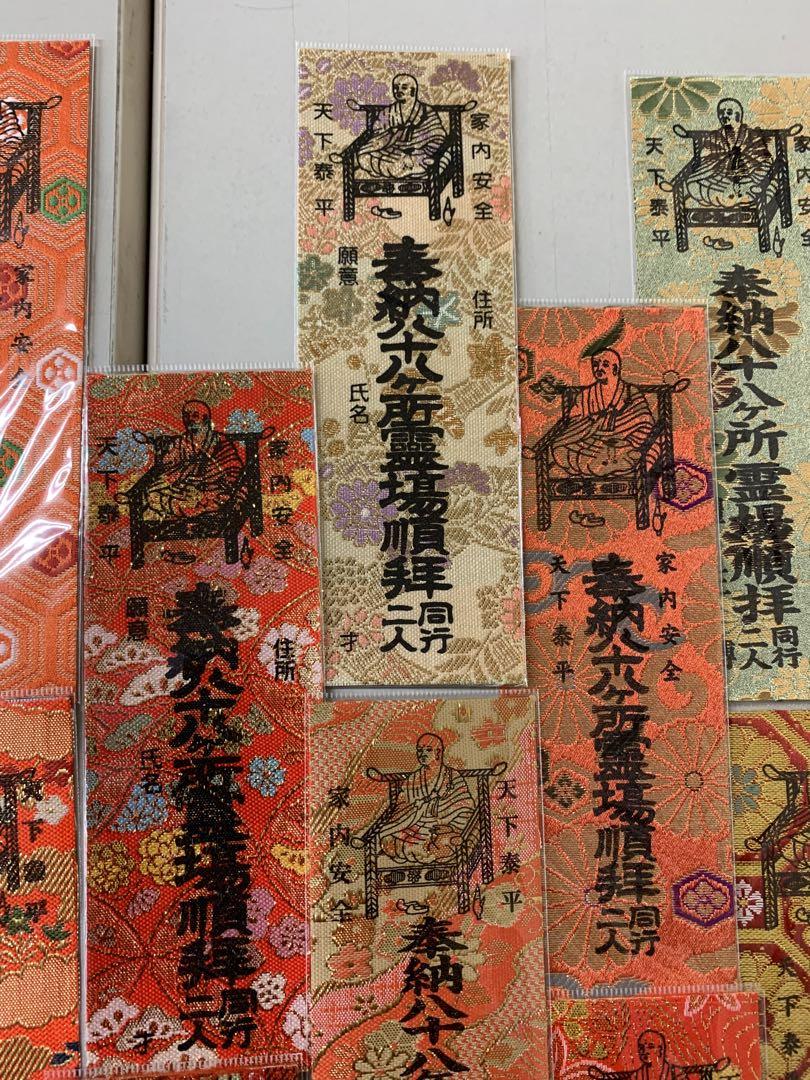 家内安全
家内安全
天下泰平
住所
奉納八十八ヶ所霊場順拝
同行
二人
願意
氏名
才
家内安全
天下泰平
奉納八十八ヶ所霊場順拝
同行
二人
家内安全
天下泰平
住所
奉納八十八ヶ所霊場順拝
同行
二人
願意
氏名
才
家内安全
天下泰平
奉納八十八ヶ所霊場順拝
同行
二人
天下泰平
天下泰平
家内安全
奉納八十八ヶ
天下泰